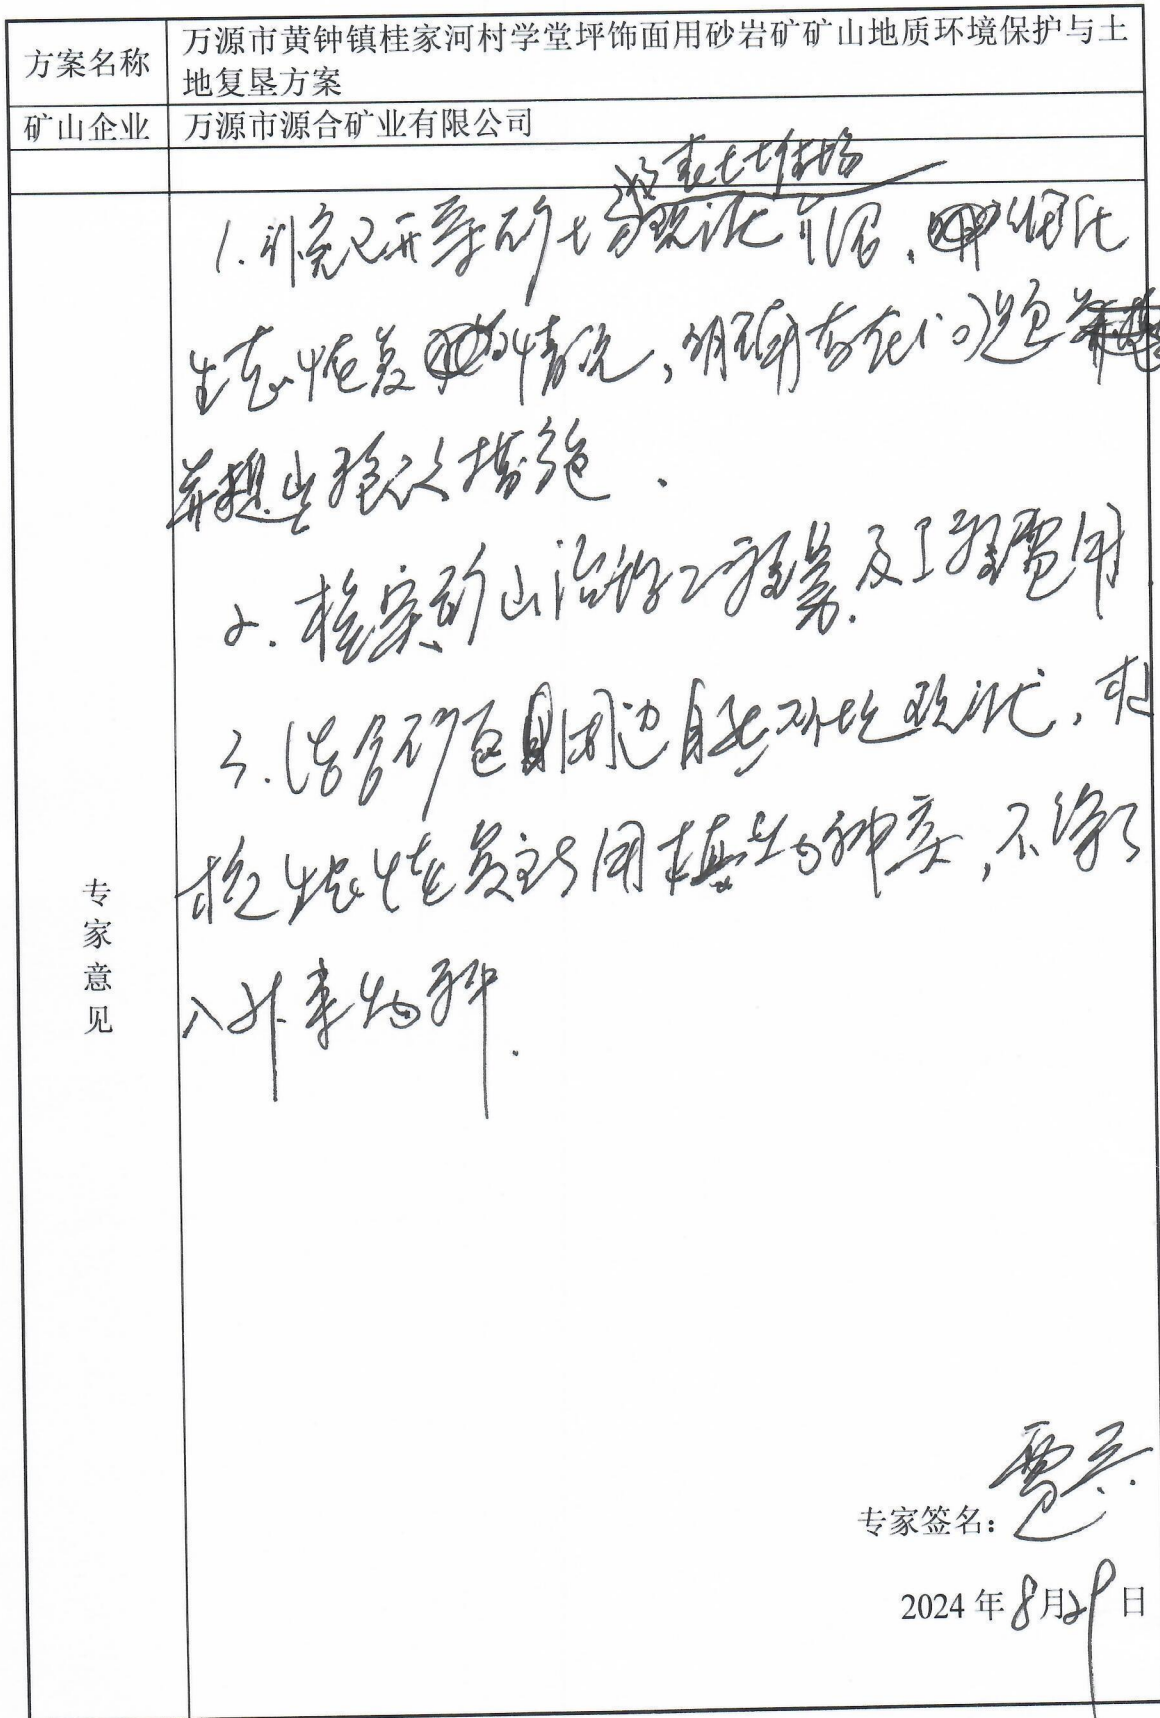 方案名称
万源市黄钟镇桂家河村学堂坪饰面用砂岩矿矿山地质环境保护与土
地复垦方案
矿山企业
万源市源合矿业有限公司
专家意见
表土堆场
1.补充已开采矿土现状介绍,细化
生态恢复的情况,明确存在问题
并提出整改措施.
2.核实矿山治理工程量及工程费用
3.结合矿区周边自然环境现状,
生态恢复选用植物种类,不得引
入外来物种.
专家签名:
2024年8月29日